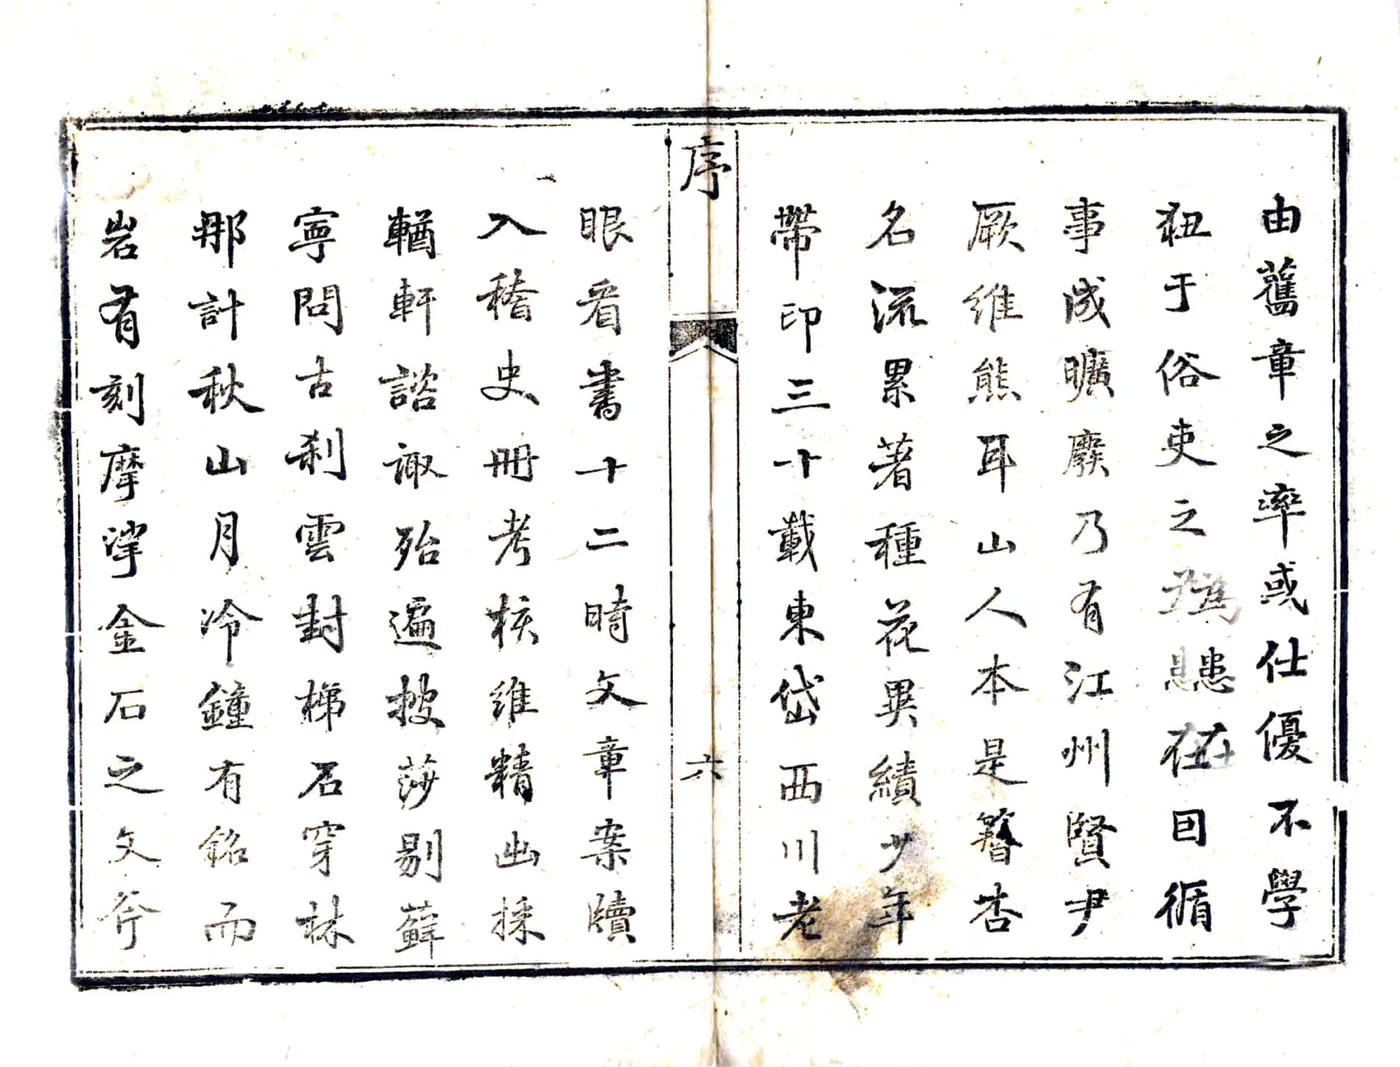 由舊章之率或仕優不學
狃于俗吏之為患在因循
事成曠廢乃有江州賢尹
厥維熊耳山人本是簪杏
名流累著種花異績少年
帶印三十載東岱西川老
序
六
眼看書十二時文章案牘
入稽史冊考核維精幽採
輶軒諮諏殆遍披莎剔蘚
寧問古剎雲封梯石穿林
那計秋山月冷鐘有銘而
岩有刻摩挲金石之文斧